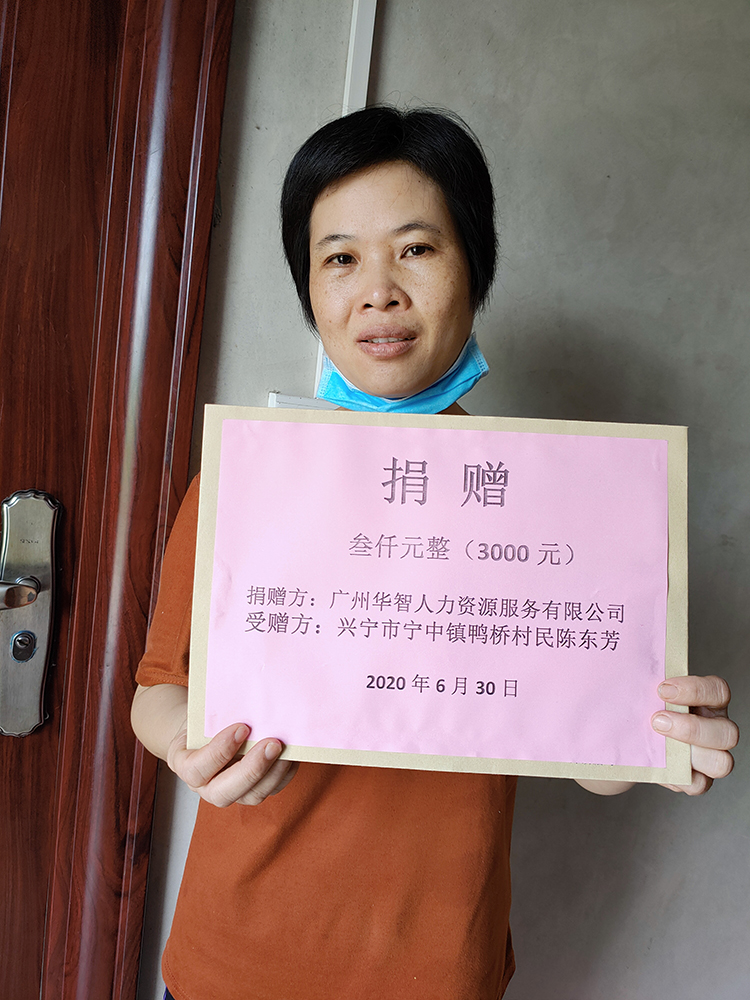 捐赠
叁仟元整（3000 元）
捐赠方：广州华智人力资源服务有限公司
受赠方：兴宁市宁中镇鸭桥村民陈东芳
2020 年 6 月 30 日